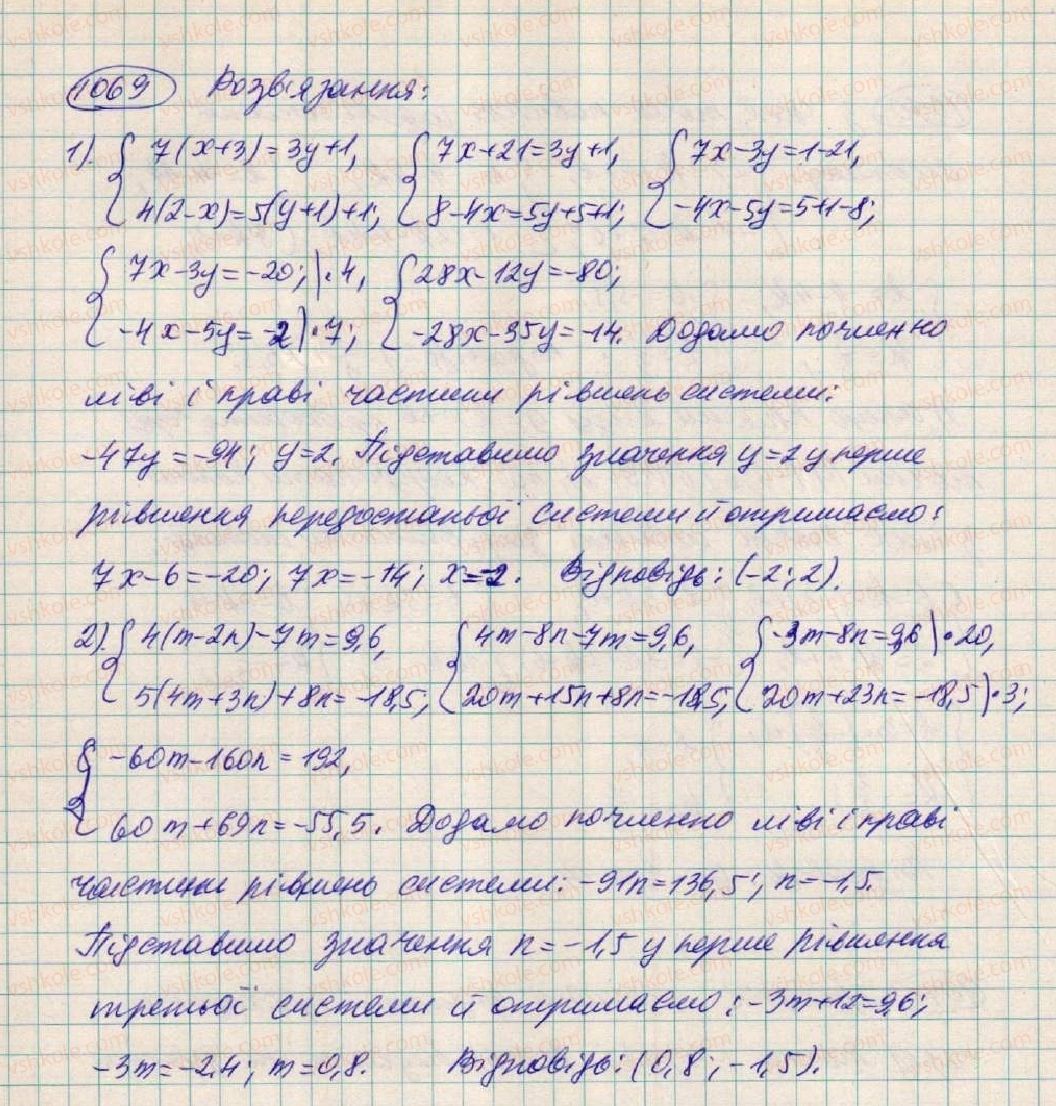 1069 Розв'язання:
1). { 7(x+3)=3y+1, { 7x+21=3y+1, { 7x-3y=1-21,
4(2-x)=5(y+1)+1; 8-4x=5y+5+1; -4x-5y=5+1-8;
{ 7x-3y=-20; |·4, { 28x-12y=-80;
-4x-5y=-2 |·7; -28x-35y=-14. Додамо почленно
ліві і праві частини рівнянь системи:
-47y=-94; y=2. Підставимо значення y=2 у перше
рівняння передостаньої системи й отримаємо:
7x-6=-20; 7x=-14; x=-2. Відповідь: (-2; 2).
2). { 4(m-2n)-7m=9,6, { 4m-8n-7m=9,6, { -3m-8n=9,6 |·20,
5(4m+3n)+8n=-18,5; 20m+15n+8n=-18,5; 20m+23n=-18,5 |·3;
{ -60m-160n=192,
60m+69n=-55,5. Додамо почленно ліві і праві
частини рівнянь системи: -91n=136,5; n=-1,5.
Підставимо значення n=-1,5 у перше рівняння
третьої системи й отримаємо: -3m+12=9,6;
-3m=-2,4; m=0,8. Відповідь: (0,8; -1,5).